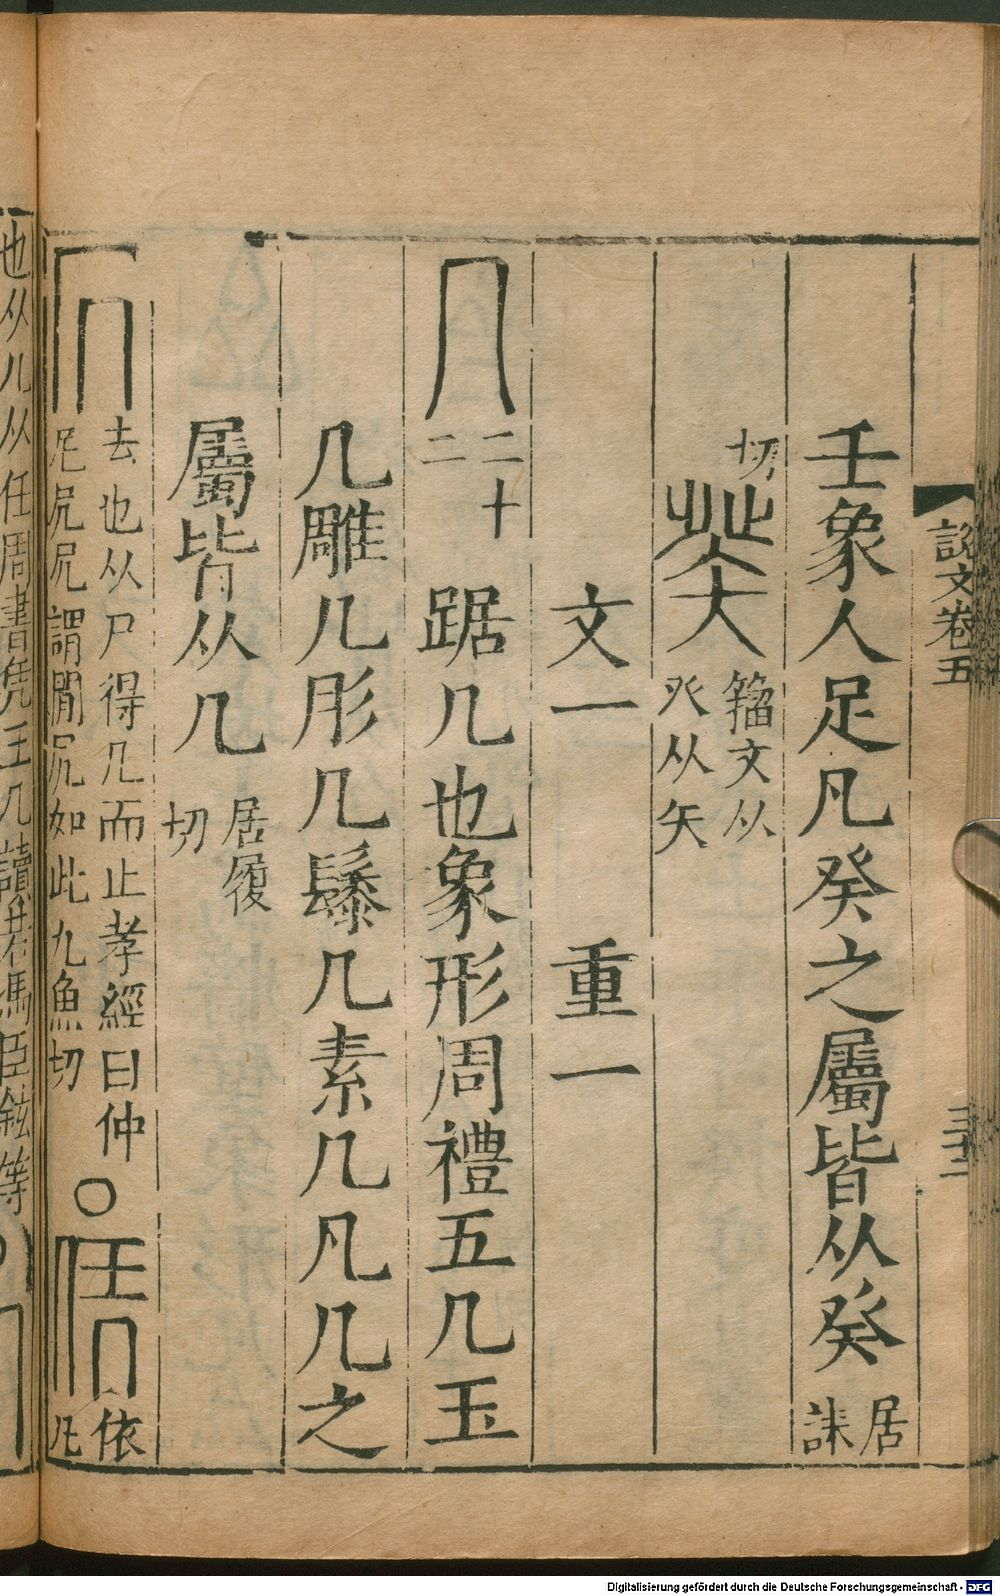 説文卷五
三十二
壬象人足凡癸之屬皆从癸居誄
切 籀文从癶从矢
文一 重一
二十二 踞几也象形周禮五几玉
几雕几彤几鬃几素几凡几之
屬皆从几居履切
去也从尸得几而止孝經曰仲
尼凥凥謂閒凥如此九魚切
○ 依几
也从几从任周書凭玉几讀若馮臣鉉等
Digitalisierung gefördert durch die Deutsche Forschungsgemeinschaft - DFG